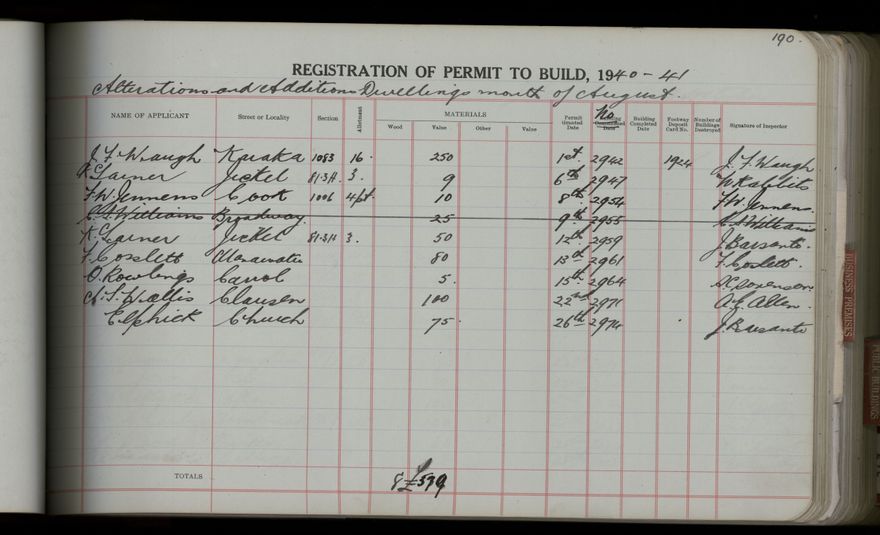 190.
REGISTRATION OF PERMIT TO BUILD, 1940-41
Alterations and Additions Dwellings month of August.
NAME OF APPLICANT Street or Locality Section Allotment MATERIALS Wood Value Other Value Permit Granted Date No. Building Commenced Date Building Completed Date Footway Deposit Card No. Number of Buildings Destroyed Signature of Inspector
J. F. Waugh Karaka 1083 16. 250 1st. 2942 1924 J. F. Waugh
Garner Jickel 81.3H. 3. 9 6th 2947 W Rabbits
F. W. Jennens Cook 1006 4/pt. 10 8th 2954 F. W. Jennens.
C A Williams Broadway 25 9th 2955 C A Williams
Garner Jickel 81.3H 3. 50 12th. 2959 J Barsanti.
F. Coslett Manawatu 80 13th 2961 F. Coslett.
O. Rowlings Carrol 5. 15th. 2964 Sorenson
Wallis Clausen 100 22nd 2971 A. G. Allen.
Elphick Church 75. 26th 2974 J Barsanti
TOTALS 8 £579
BUSINESS PREMISES
PUBLIC BUILDINGS